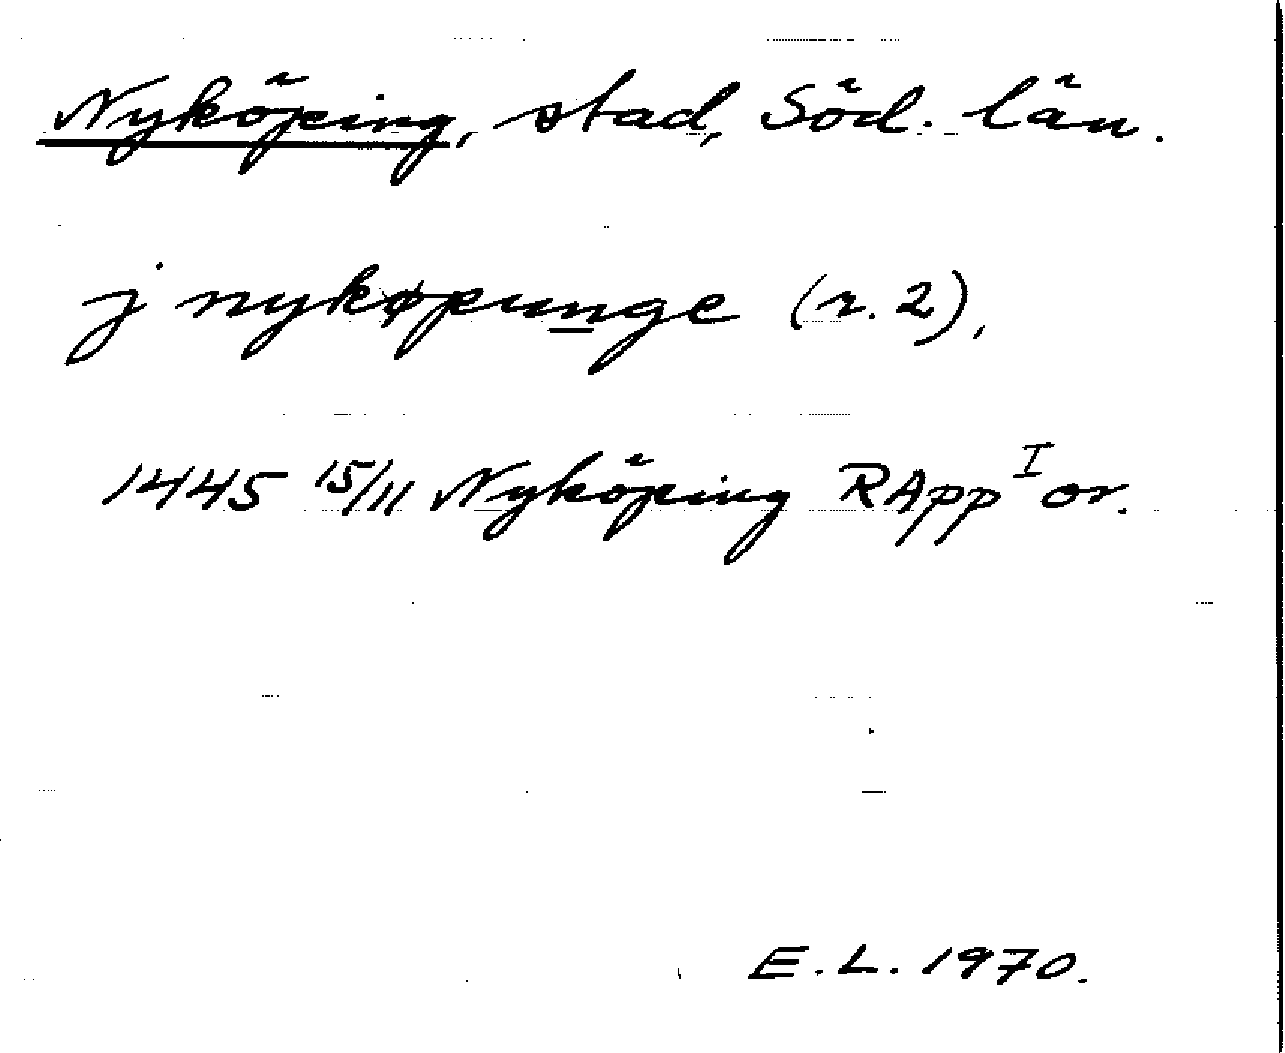 Nyköping, stad, Söd. län.
j nykøpunge (r. 2).
1445 15/11 Nyköping RApp I or.
E.L. 1970.